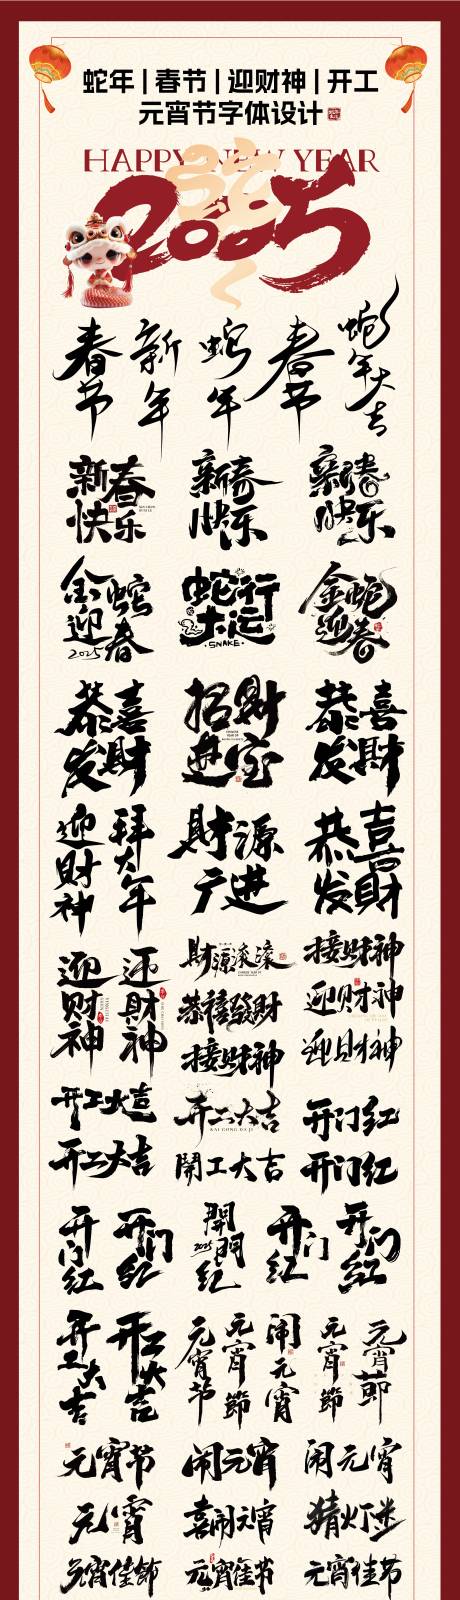 蛇年 | 春节 | 迎财神 | 开工
元宵节字体设计
HAPPY NEW YEAR
蛇
2025
春节
新年
蛇年
春节
蛇年大吉
新春快乐
新春快乐
新春快乐
金蛇迎春
2025
蛇行大运
·SNAKE·
金蛇迎春
恭喜发財
招財進宝
恭喜发財
迎财神
拜大年
財源广进
恭喜发財
迎财神
迎財神
財源滚滚
恭禧發財
接财神
接财神
迎财神
迎财神
开工大吉
开工大吉
开工大吉
KAI GONG DA JI
開工大吉
开门红
开门红
开门红
开门红
開門红
2025
开门红
开门红
开工大吉
开工大吉
元宵节
元宵節
闹元宵
元宵節
元宵節
元宵节
闹元宵
闹元宵
元宵
喜闹元宵
猜灯迷
元宵佳節
元宵佳节
元宵佳节